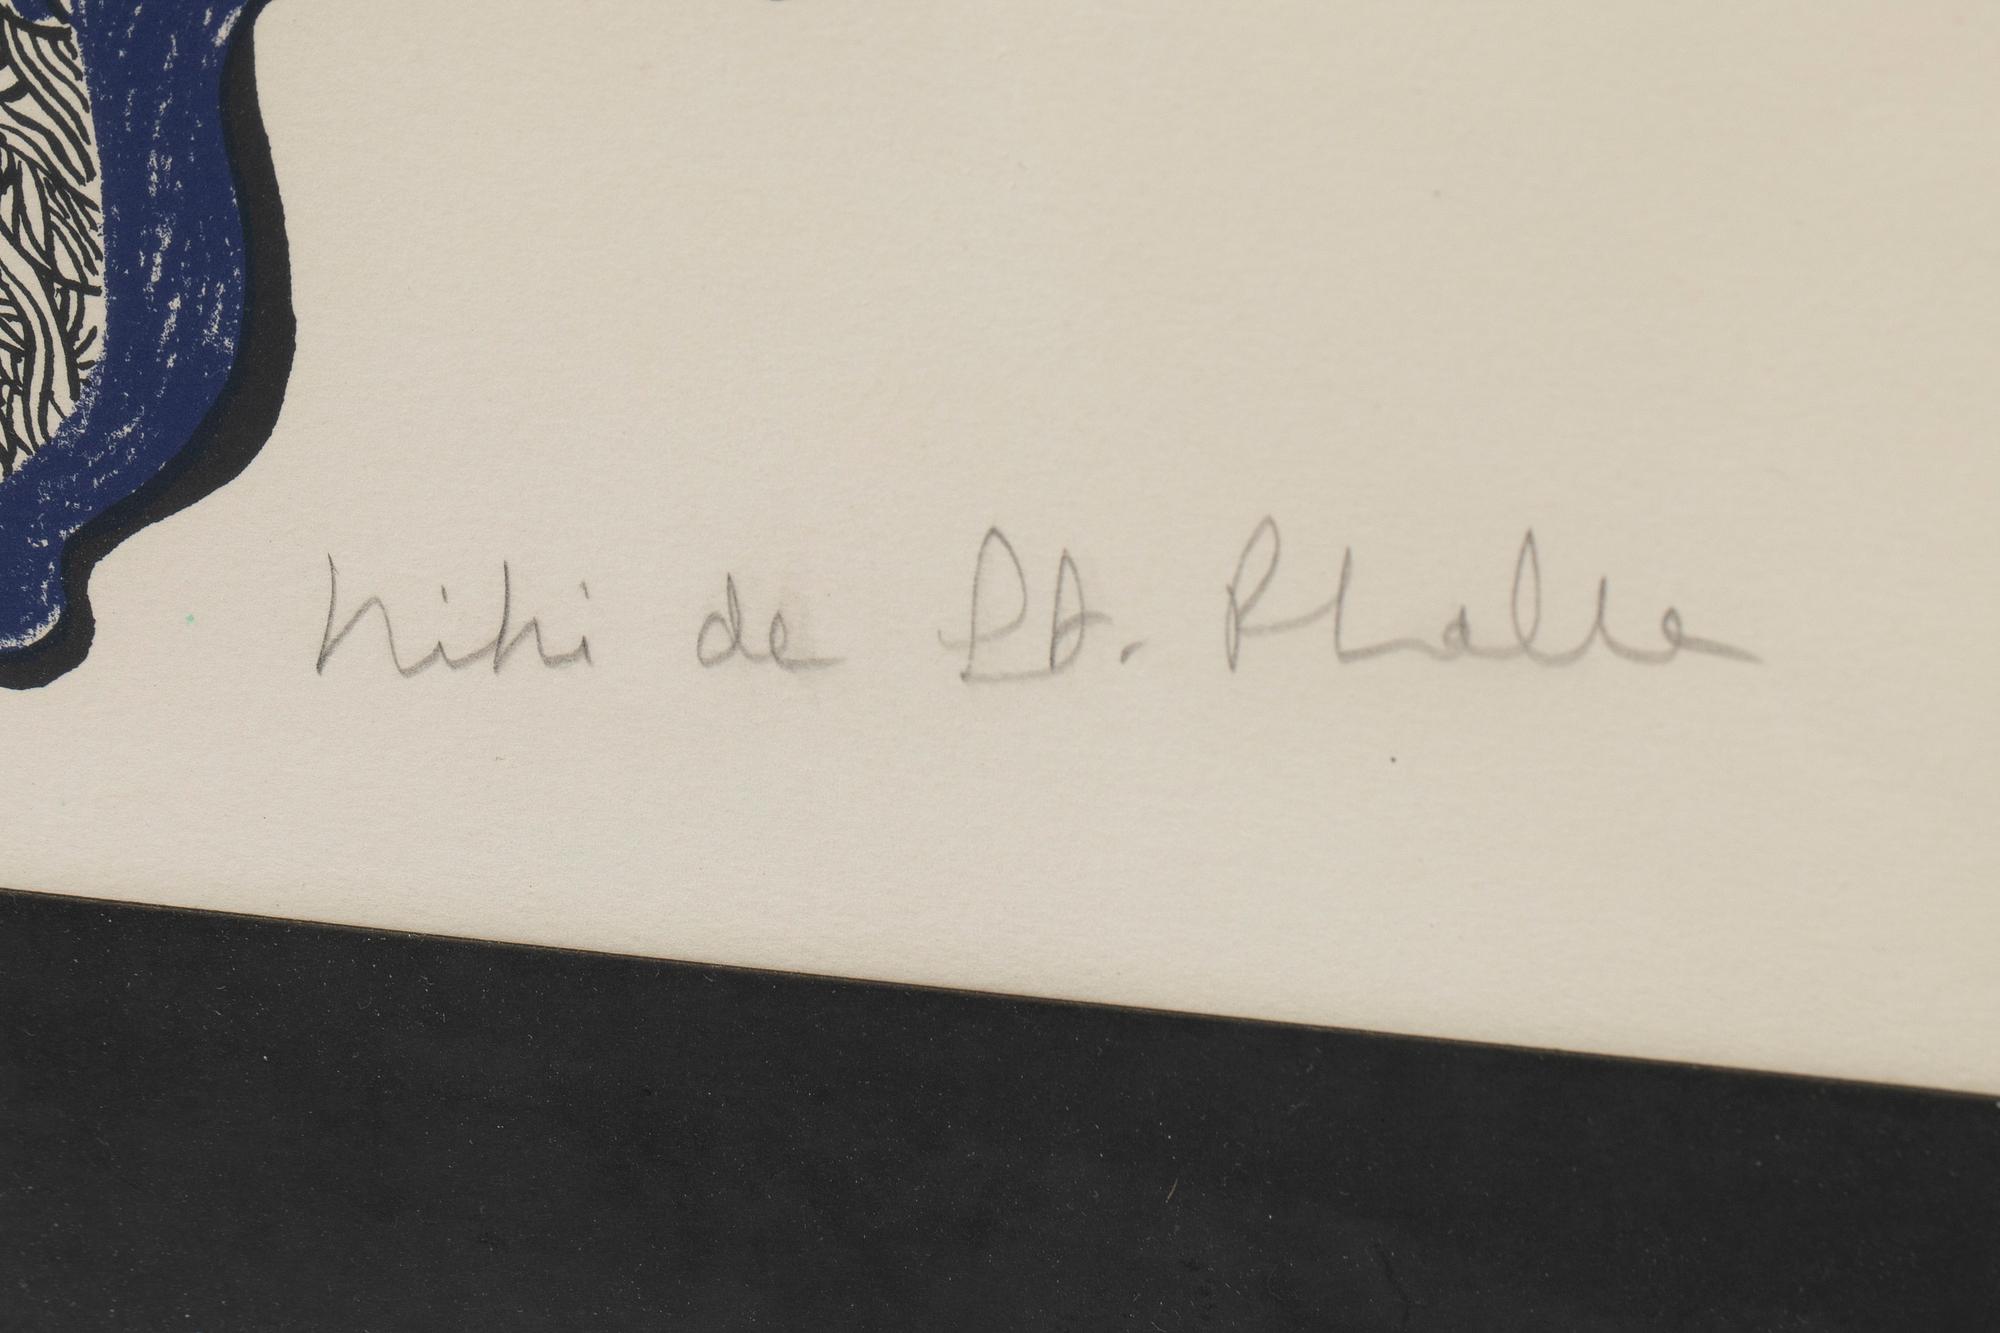 Niki de St. Phalle